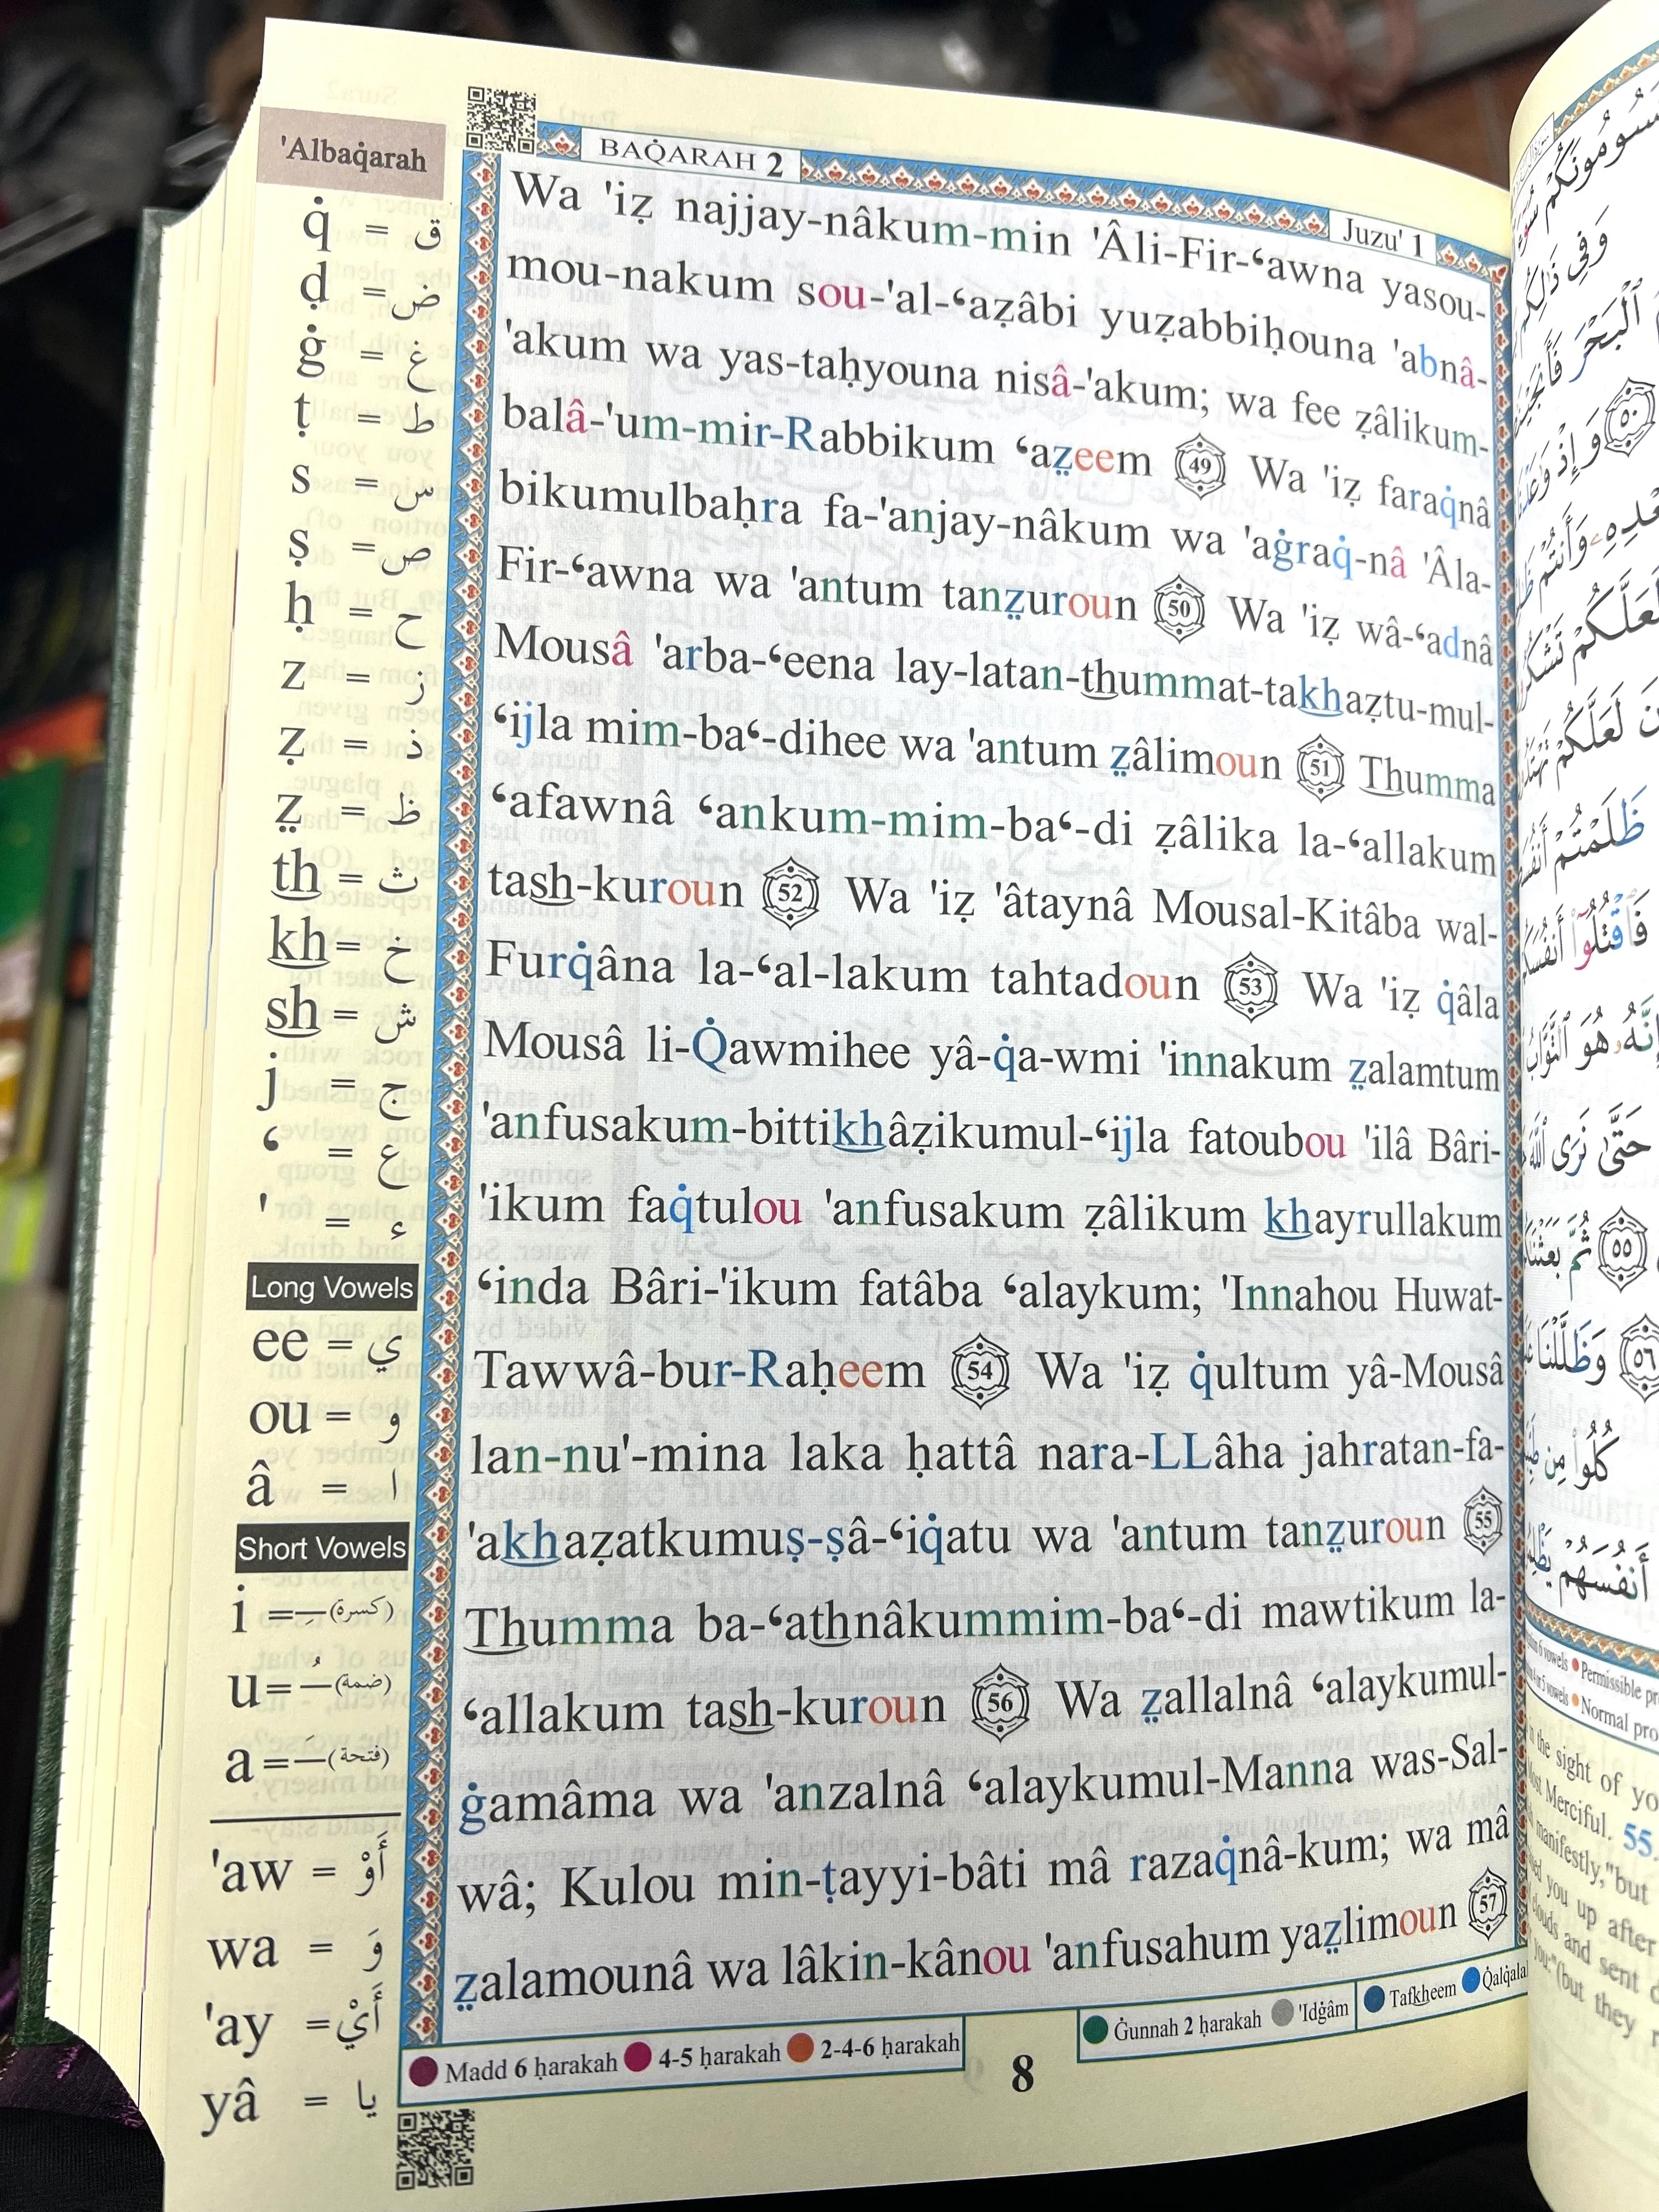 'Albaq̇arah
BAQ̇ARAH 2
Juzu' 1
q̇ = ق
ḍ = ض
ġ = غ
ṭ = ط
s = س
ṣ = ص
ḥ = ح
z = ز
ẓ = ذ
ẓ̤ = ظ
th = ث
kh = خ
sh = ش
j = ج
ʻ = ع
' = ء
Long Vowels
ee = ي
ou = و
â = ا
Short Vowels
i = (كسرة)
u = (ضمة)
a = (فتحة)
'aw = أَوْ
wa = وَ
'ay = أَيْ
yâ = يا
Wa 'iẓ najjay-nâkum-min 'Âli-Fir-ʻawna yasou-
mou-nakum sou-'al-ʻaẓâbi yuẓabbiḥouna 'abnâ-
'akum wa yas-taḥyouna nisâ-'akum; wa fee ẓâlikum-
balâ-'um-mir-Rabbikum ʻaẓ̤eem 49 Wa 'iẓ faraq̇nâ
bikumulbaḥra fa-'anjay-nâkum wa 'aġraq̇-nâ 'Âla-
Fir-ʻawna wa 'antum tanẓ̤uroun 50 Wa 'iẓ wâ-ʻadnâ
Mousâ 'arba-ʻeena lay-latan-thummat-takhaẓtu-mul-
ʻijla mim-baʻ-dihee wa 'antum ẓ̤âlimoun 51 Thumma
ʻafawnâ ʻankum-mim-baʻ-di ẓâlika la-ʻallakum
tash-kuroun 52 Wa 'iẓ 'âtaynâ Mousal-Kitâba wal-
Furq̇âna la-ʻal-lakum tahtadoun 53 Wa 'iẓ q̇âla
Mousâ li-Q̇awmihee yâ-q̇a-wmi 'innakum ẓ̤alamtum
'anfusakum-bittikhâẓikumul-ʻijla fatoubou 'ilâ Bâri-
'ikum faq̇tulou 'anfusakum ẓâlikum khayrullakum
ʻinda Bâri-'ikum fatâba ʻalaykum; 'Innahou Huwat-
Tawwâ-bur-Raḥeem 54 Wa 'iẓ q̇ultum yâ-Mousâ
lan-nu'-mina laka ḥattâ nara-LLâha jahratan-fa-
'akhaẓatkumuṣ-ṣâ-ʻiq̇atu wa 'antum tanẓ̤uroun 55
Thumma ba-ʻathnâkummim-baʻ-di mawtikum la-
ʻallakum tash-kuroun 56 Wa ẓ̤allalnâ ʻalaykumul-
ġamâma wa 'anzalnâ ʻalaykumul-Manna was-Sal-
wâ; Kulou min-ṭayyi-bâti mâ razaq̇nâ-kum; wa mâ
ẓ̤alamounâ wa lâkin-kânou 'anfusahum yaẓ̤limoun 57
Madd 6 ḥarakah 4-5 ḥarakah 2-4-6 ḥarakah
8
Ġunnah 2 ḥarakah 'Idġâm Tafkheem Q̇alq̇alah
وَفِي ذَٰلِكُم
ٱلْبَحْرَ
٥٠ وَإِذْ
لَعَلَّكُمْ
لَعَلَّكُمْ
ظَلَمْتُمْ
فَٱقْتُلُوٓا۟
هُوَ ٱلتَّوَّابُ
حَتَّىٰ نَرَى ٱللَّهَ
٥٥ ثُمَّ
٥٦ وَظَلَّلْنَا
كُلُوا۟ مِن
أَنفُسَهُمْ
6 vowels Permissible
vowels Normal
the sight of
Most Merciful. 55.
manifestly," but
you up after
clouds and sent
you:" (but they